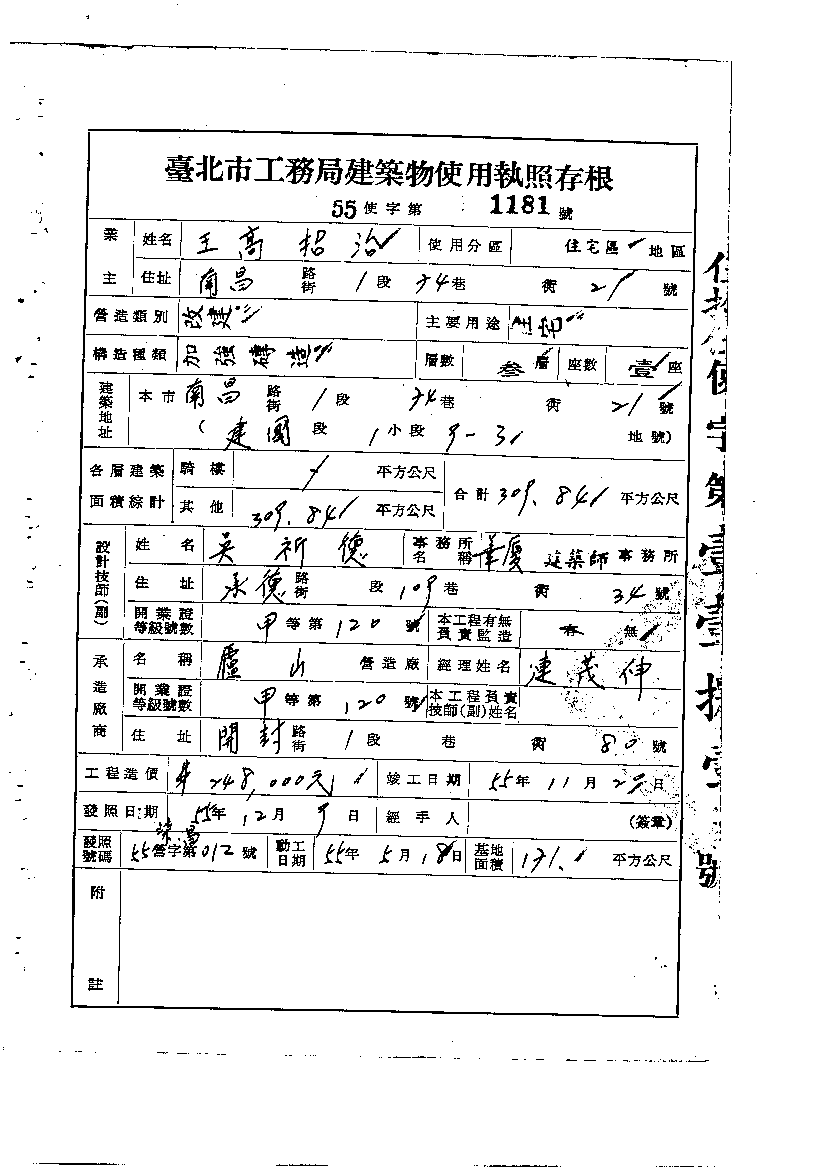 臺北市工務局建築物使用執照存根
55 使字第 1181 號
業主 姓名 王高招治 使用分區 住宅區 地區
住址 南昌 路街 1 段 34 巷 衖 21 號
營造類別 改建 主要用途 住宅
構造種類 加強磚造 層數 叁層 座數 壹座
建築地址 本市 南昌 路街 1 段 34 巷 衖 21 號
( 建國 段 1 小段 9-31 地號)
各層建築面積綜計 騎樓 平方公尺 合計 309.84 平方公尺
其他 309.84 平方公尺
設計技師(副) 姓名 吳祈德 事務所名稱 華廈 建築師 事務所
住址 承德 路街 段 109 巷 衖 34 號
開業證等級號數 甲 等第 120 號 本工程有無負責監造 有 無
承造廠商 名稱 廬山 營造廠 經理姓名 連茂伸
開業證等級號數 甲 等第 120 號 本工程負責技師(副)姓名
住址 開封 路街 1 段 巷 衖 80 號
工程造價 248,000元 竣工日期 55年 11月 20日
發照日期 55年 12月 9日 經手人 (簽章)
發照號碼 55營字第012號 動工日期 55年 5月 18日 基地面積 131. 平方公尺
附註
使字第壹壹捌壹號